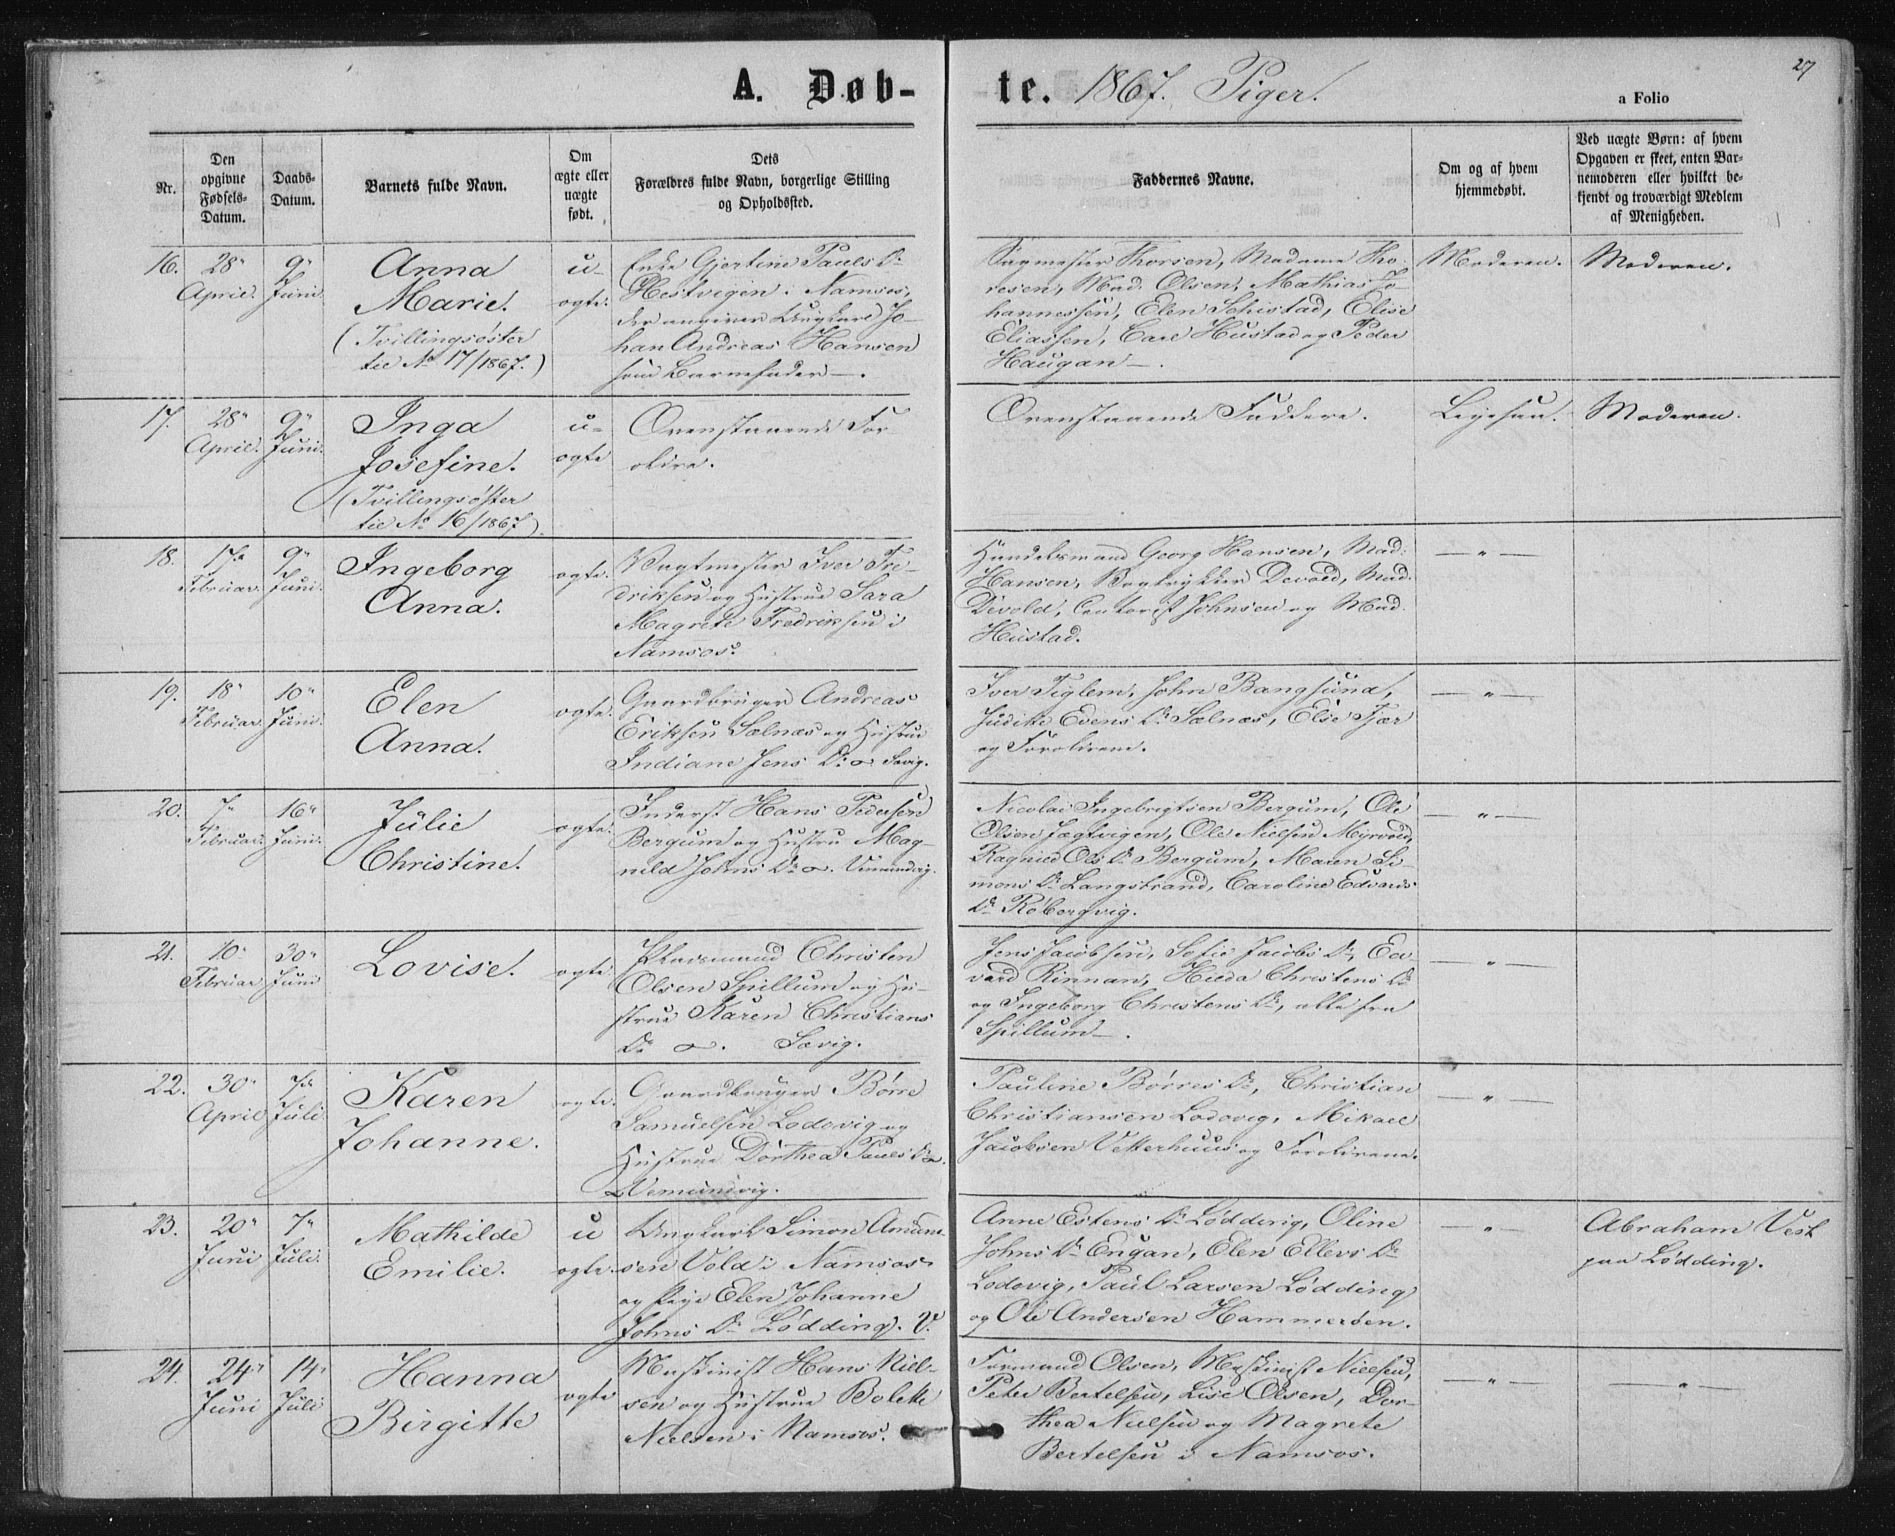 27
A. Døb-
te. 1867. Piger.
a Folio
Nr.
Den opgivne Fødsels-Datum.
Daabs-Datum.
Barnets fulde Navn.
Om ægte eller uægte født.
Dets Forældres fulde Navn, borgerlige Stilling og Opholdssted.
Faddernes Navne.
Om og af hvem hjemmedøbt.
Ved uægte Børn: af hvem Opgaven er skeet, enten Barnemoderen eller hvilket bekjendt og troværdigt Medlem af Menigheden.
16.
28"
April.
9"
Juni.
Anna
Marie.
(Tvillingsøster
til No 17/1867.)
u-
ægte.
Enke Gjertine Pauls Dr
Hestvigen i Namsos,
der angiver Ungkarl Jo-
han Andreas Hansen
som Barnefader.
Thorsen, Madame Tho-
resen, Mad. Olsen, Mathias Jo-
hannessen, Elen Schistad, Elise
Eliassen, Carl Hustad og Peder
Haugan.
Moderen.
Moderen.
17.
28"
April.
9"
Juni.
Inga
Josefine.
(Tvillingsøster
til No 16/1867)
u-
ægte
Ovenstaaende For-
ældre.
Ovenstaaende Faddere.
Moderen.
18.
17de
Februar.
9"
Juni.
Ingeborg
Anna.
ægte.
Vagtmester Iver Fre-
driksen og Hustrue Sara
Magrete Fredriksen i
Namsos.
Handelsmand Georg Hansen, Mad.
Hansen, Bogtrykker Devold, Mad.
Devold, Contorist Johnsen og Mad.
Hustad.
— " —
19.
18"
Februar.
10"
Juni.
Elen
Anna.
ægte.
Gaardbruger Andreas
Eriksen Sælnæs og Hustrue
Indiane Jens Dr a Sævig.
Iver Tiglem, John Bangsund,
Judithe Evens Dr Sælnæs, Elise Fjær
og Forældrene.
— " —
20.
7"
Februar.
16"
Juni.
Julie
Christine.
ægte.
Inderst Hans Pedersen
Bergum og Hustru Mag-
nild Johns Dr a. Vemundvig.
Nicolai Ingebrigtsen Bergum, Ole
Olsen Jægtvigen, Ole Nielsen Myrvold,
Ragnild Ols Dr Bergum, Maren Si-
mons Dr Langstrand, Caroline Edvards
Dr Robergvig.
— " —
21.
10"
Februar
30"
Juni
Lovise.
ægte.
Pladsmand Christen
Olsen Spillum og Hu-
strue Karen Christians
Dr a. Sævig.
Jens Jacobsen, Sofie Jacobs Dr, Ed-
vard Rinnan, Hilda Christens Dr
og Ingeborg Christens Dr, alle fra
Spillum.
— " —
22.
30"
April
7de
Juli
Karen
Johanne.
ægte.
Gaardbruger Børre
Samuelsen Lodovig og
Hustrue Dorthea Pauls Dr a.
Vemundvig.
Pauline Børres Dr, Christian
Christiansen Lodovig, Mikael
Jacobsen Vetterhuus og Forældrene.
— " —
23.
20"
Juni
7"
Juli.
Mathilde
Emilie.
u
ægte.
Ungkarl Simon Amund-
sen Vold i Namsos
og Pige Elen Johanne
Johns Dr Lødding. V.
Anne Estens Dr Lødding, Oline
Johns Dr Engan, Elen Ellevs Dr
Lodovig, Paul Larsen Lødding
og Ole Andersen Hammersen.
— " —
Abraham Vest
paa Lødding.
24.
24"
Juni
14"
Juli
Hanna
Birgitte
ægte
Maskinist Hans Niel-
sen og Hustrue Bolette
Nielsen i Namsos.
Formand Olsen, Maskinist Nielsen,
Peter Bertelsen, Lise Olsen, Dor-
thea Nielsen og Magrete
Bertelsen i Namsos.
— " —
— " —